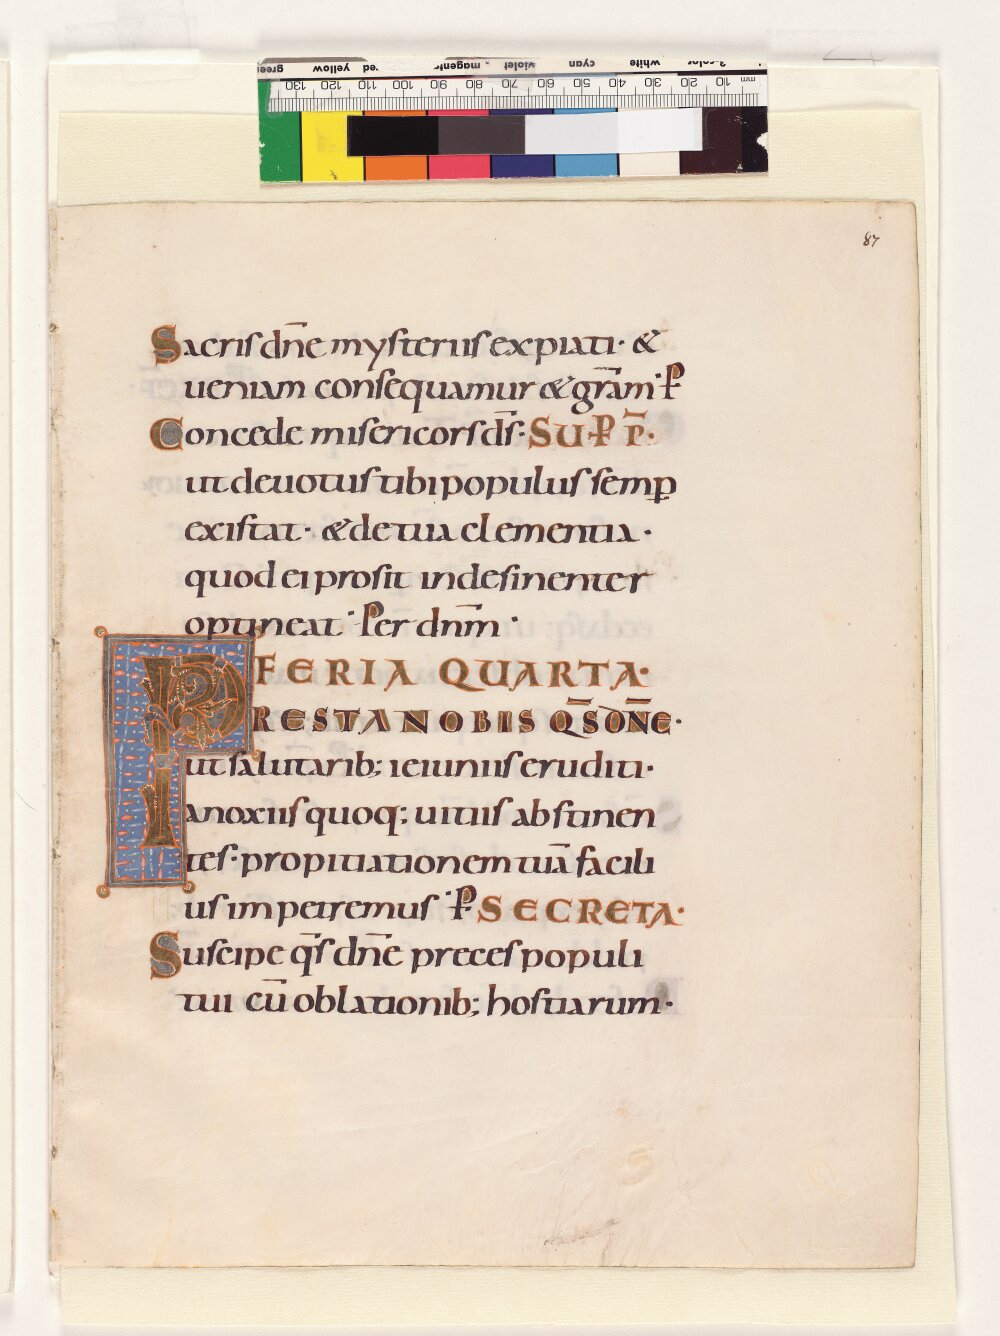 green yellow red magenta violet cyan white 3-color
130 120 110 100 90 80 70 60 50 40 30 20 10 mm
87
Sacris dn̄e mysteriis expiati· &
ueniam consequamur & gr̄am· P̄
Concede misericors ds̄· SU·P P̄·
ut deuotus tibi populus semꝑ
existat· & de tua clementia·
quod ei prosit indesinenter
optineat· Per dnm̄·
FERIA QUARTA·
PRESTA NOBIS QS̄ DN̄E·
ut salutarib; ieiuniis eruditi·
a noxiis quoq; uitiis abstinen
tes· propitiationem tuā facili
us impetremus· P̄ SECRETA·
Suscipe qs̄ dn̄e preces populi
tui cū oblationib; hostiarum·